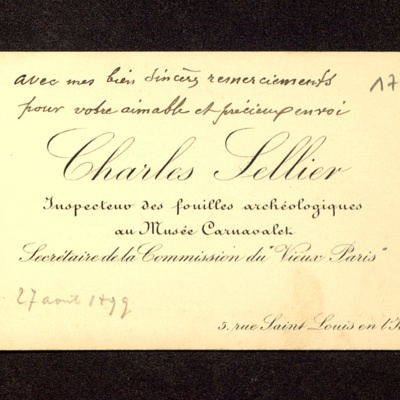 avec mes bien sincères remerciements
pour votre aimable et précieux envoi
17
Charles Sellier
Inspecteur des fouilles archéologiques
au Musée Carnavalet
Secrétaire de la Commission du "Vieux Paris"
27 août 1899
5, rue Saint Louis en l'